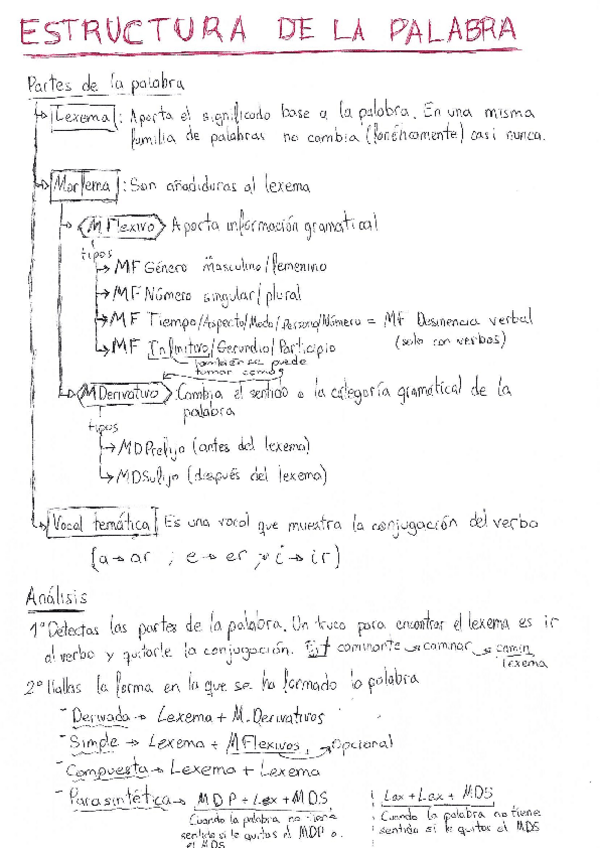 ESTRUCTURA DE LA PALABRA
Partes de la palabra
Lexema: Aporta el significado base a la palabra. En una misma
familia de palabras no cambia (fonéticamente) casi nunca.
Morfema: Son añadiduras al lexema
M Flexivo Aporta información gramatical
tipos
MF Género masculino/femenino
MF Número singular/plural
MF Tiempo/Aspecto/Modo/Persona/Número = MF Desinencia verbal
(solo con verbos)
MF Infinitivo/Gerundio/Participio
también se puede
tomar como
M Derivativo Cambia el sentido o la categoría gramatical de la
palabra
tipos
MD Prefijo (antes del lexema)
MD Sufijo (después del lexema)
Vocal temática Es una vocal que muestra la conjugación del verbo
(a → ar ; e → er ; i → ir)
Análisis
1º Detectas las partes de la palabra. Un truco para encontrar el lexema es ir
al verbo y quitarle la conjugación. caminante → caminar → camin
lexema
2º Hallas la forma en la que se ha formado la palabra
- Derivada → Lexema + M. Derivativos
- Simple → Lexema + M Flexivos → Opcional
- Compuesta → Lexema + Lexema
- Parasintética → MDP + Lex + MDS
Cuando la palabra no tiene
sentido si le quitas el MDP o
el MDS
Lex + Lex + MDS
Cuando la palabra no tiene
sentido si le quitas el MDS